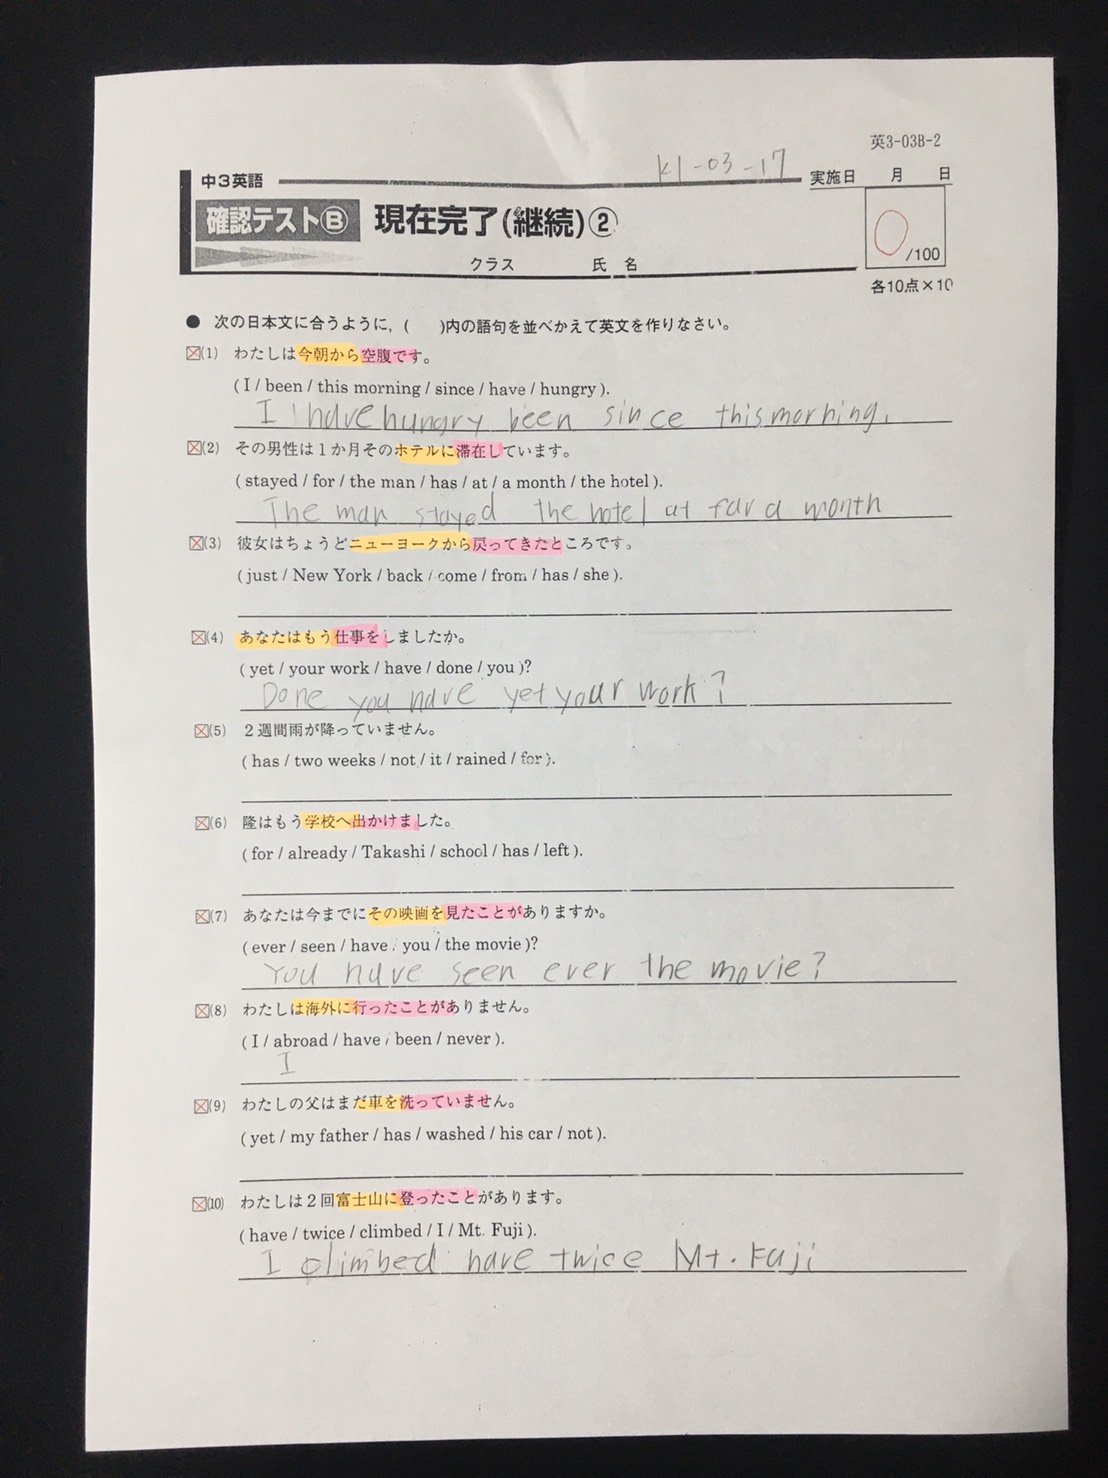 英3-03B-2
K1-03-17
中3英語
実施日 月 日
確認テストⒷ 現在完了(継続)②
0/100
クラス 氏 名
各10点×10
● 次の日本文に合うように,( )内の語句を並べかえて英文を作りなさい。
(1) わたしは今朝から空腹です。
( I / been / this morning / since / have / hungry ).
I have hungry been since this morning.
(2) その男性は1か月そのホテルに滞在しています。
( stayed / for / the man / has / at / a month / the hotel ).
The man stayed the hotel at for a month
(3) 彼女はちょうどニューヨークから戻ってきたところです。
( just / New York / back / come / from / has / she ).
(4) あなたはもう仕事をしましたか。
( yet / your work / have / done / you )?
Done you have yet your work?
(5) 2週間雨が降っていません。
( has / two weeks / not / it / rained / for ).
(6) 隆はもう学校へ出かけました。
( for / already / Takashi / school / has / left ).
(7) あなたは今までにその映画を見たことがありますか。
( ever / seen / have / you / the movie )?
You have seen ever the movie?
(8) わたしは海外に行ったことがありません。
( I / abroad / have / been / never ).
I
(9) わたしの父はまだ車を洗っていません。
( yet / my father / has / washed / his car / not ).
(10) わたしは2回富士山に登ったことがあります。
( have / twice / climbed / I / Mt. Fuji ).
I climbed have twice Mt. Fuji